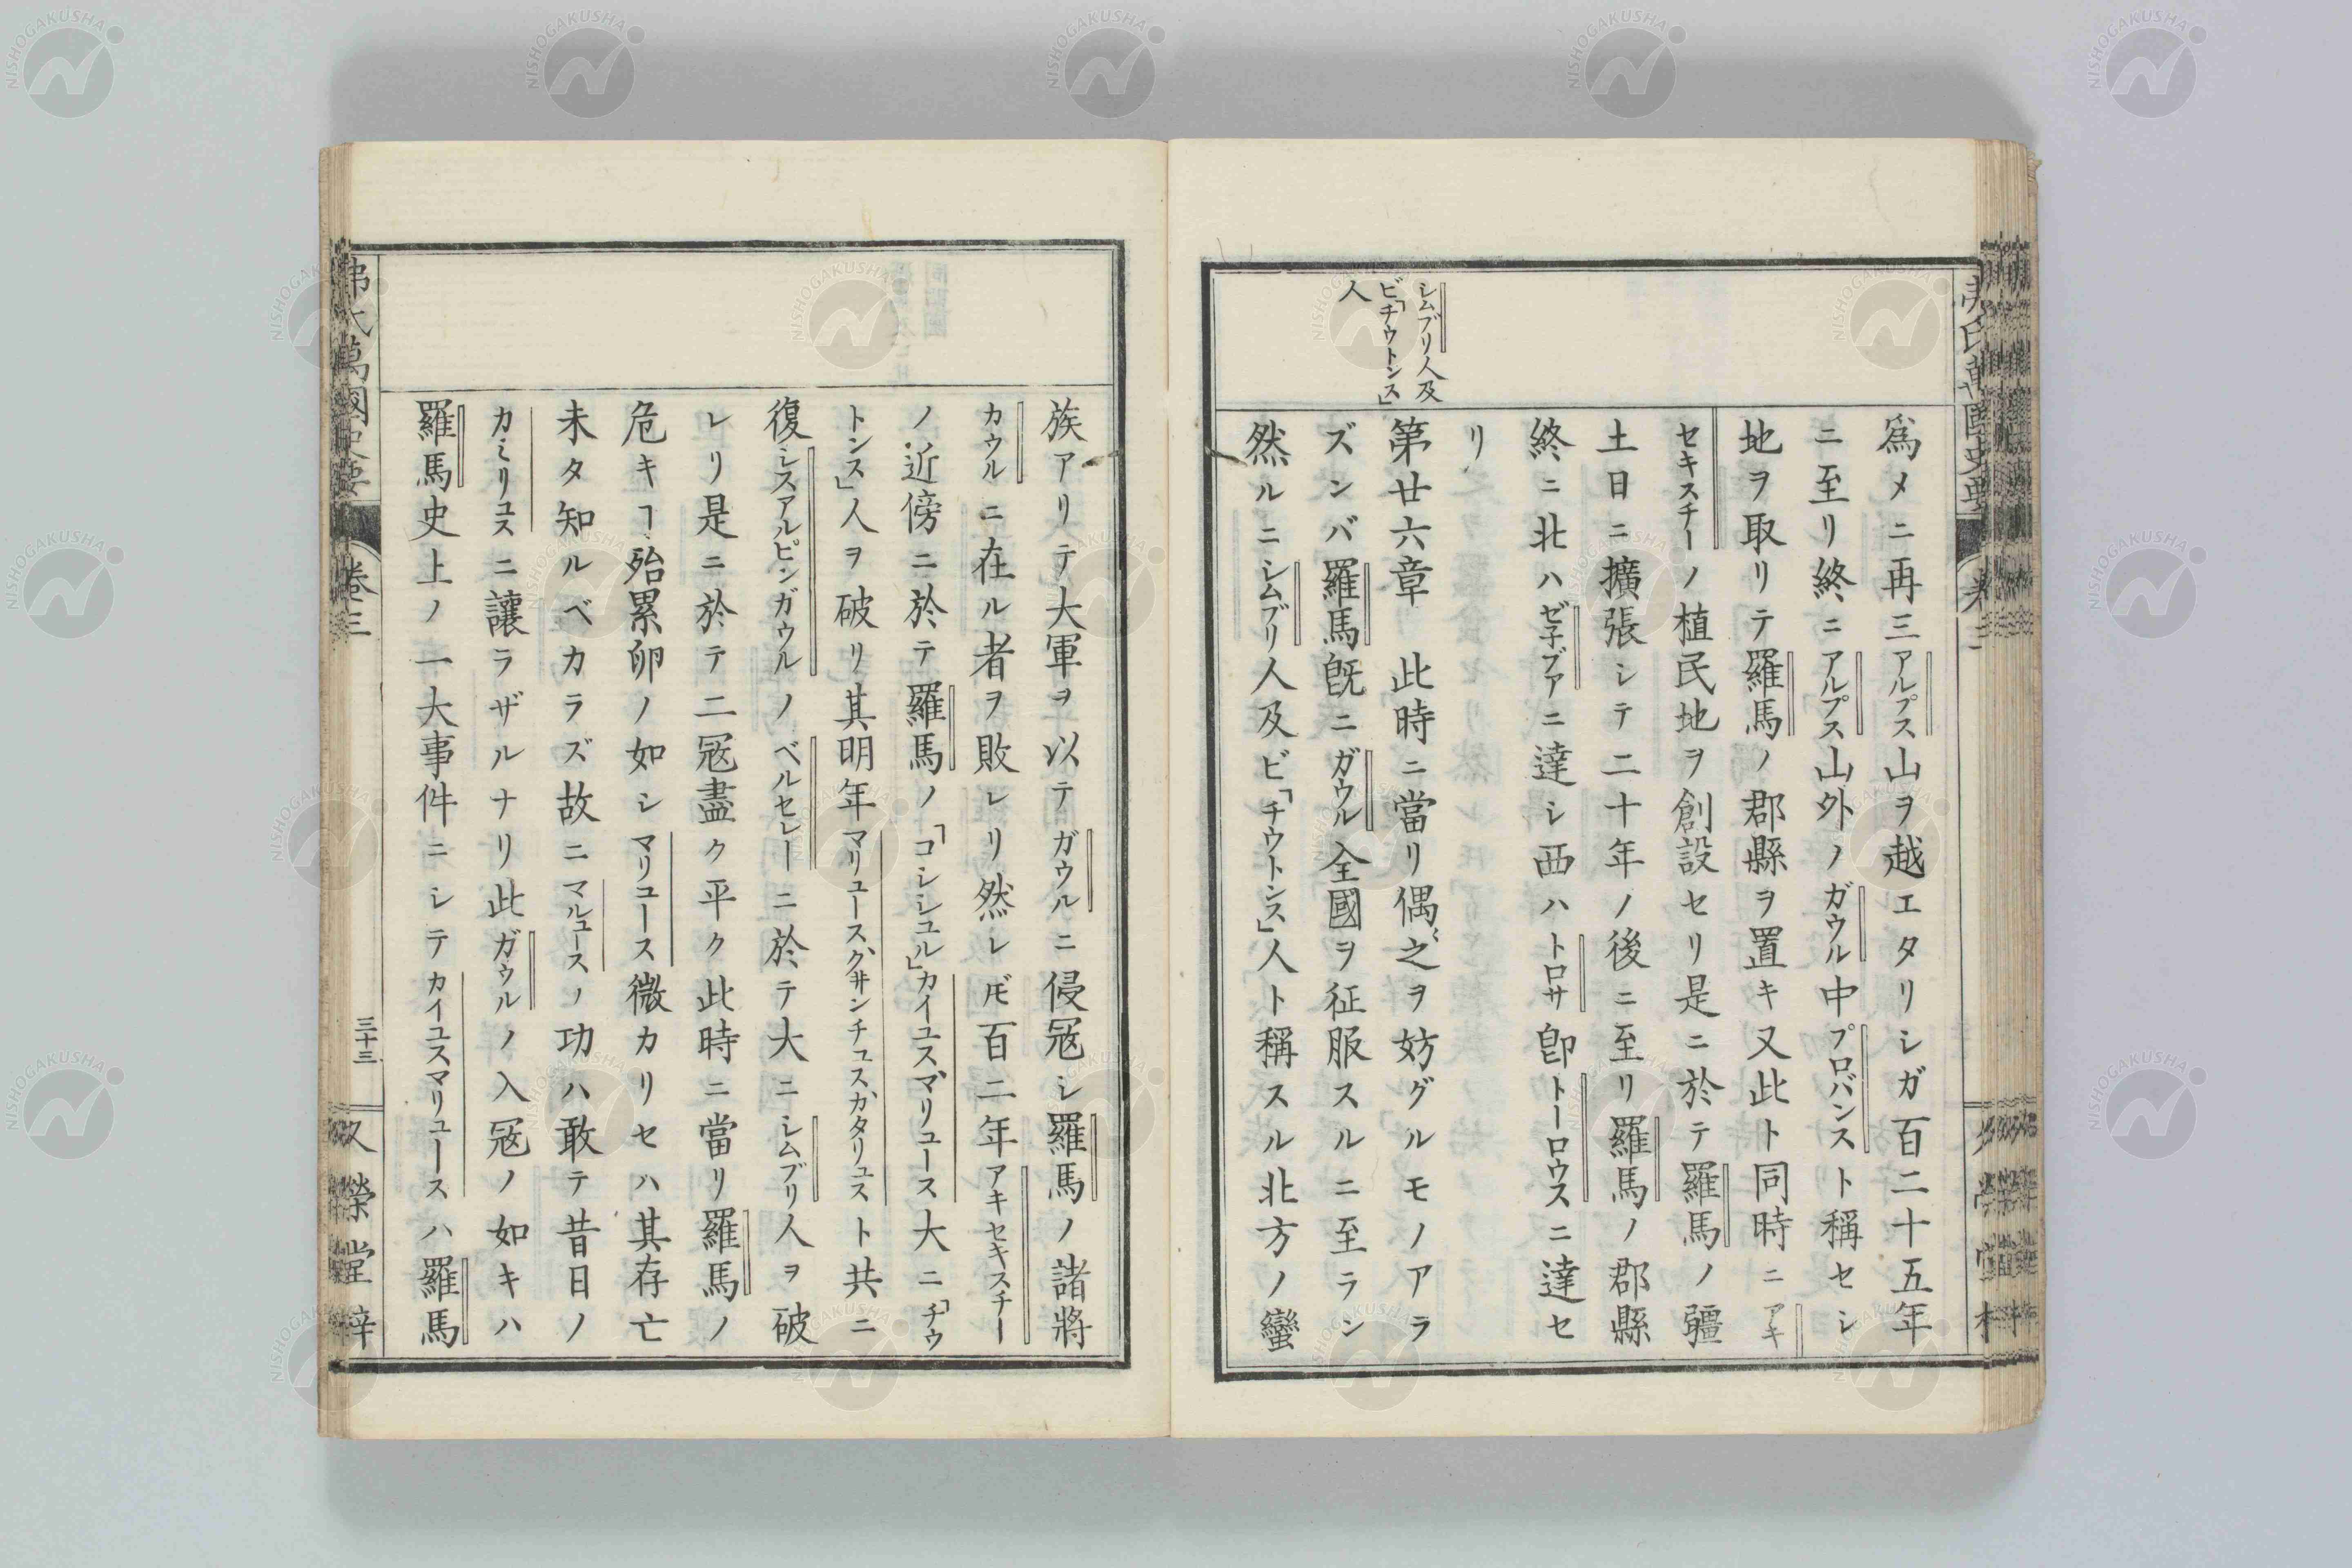 シムブリ人及
ビ「チウトンス」
人
爲メニ再三アルプス山ヲ越エタリシガ百二十五年
ニ至リ終ニアルプス山外ノガウル中プロバンスト稱セシ
地ヲ取リテ羅馬ノ郡縣ヲ置キ又此ト同時ニアキ
セキスチーノ植民地ヲ創設セリ是ニ於テ羅馬ノ疆
土日ニ擴張シテ二十年ノ後ニ至リ羅馬ノ郡縣
終ニ北ハゼ子ブアニ達シ西ハトロサ卽トーロウスニ達セ
リ
第廿六章 此時ニ當リ偶〻之ヲ妨グルモノアラ
ズンバ羅馬旣ニガウル全國ヲ征服スルニ至ラン
然ルニシムブリ人及ビ「チウトンス」人ト稱スル北方ノ蠻
族アリテ大軍ヲ以テガウルニ侵冦シ羅馬ノ諸將
カウルニ在ル者ヲ敗レリ然レ𪜈百二年アキセキスチー
ノ近傍ニ於テ羅馬ノ「コンシユル」カイユスマリユース大ニ「チウ
トンス」人ヲ破リ其明年マリユースクヰンチユスカタリユスト共ニ
復シスアルピンガウルノベルセレーニ於テ大ニシムブリ人ヲ破
レリ是ニ於テ二冦盡ク平ク此時ニ當リ羅馬ノ
危キヿ殆累卵ノ如シマリユース微カリセハ其存亡
未タ知ルベカラズ故ニマルユースノ功ハ敢テ昔日ノ
カミリユスニ讓ラザルナリ此ガウルノ入冦ノ如キハ
羅馬史上ノ一大事件ニシテカイユスマリユースハ羅馬
弗氏萬國史要
卷三
三十三
文榮堂梓
NISHOGAKUSHA